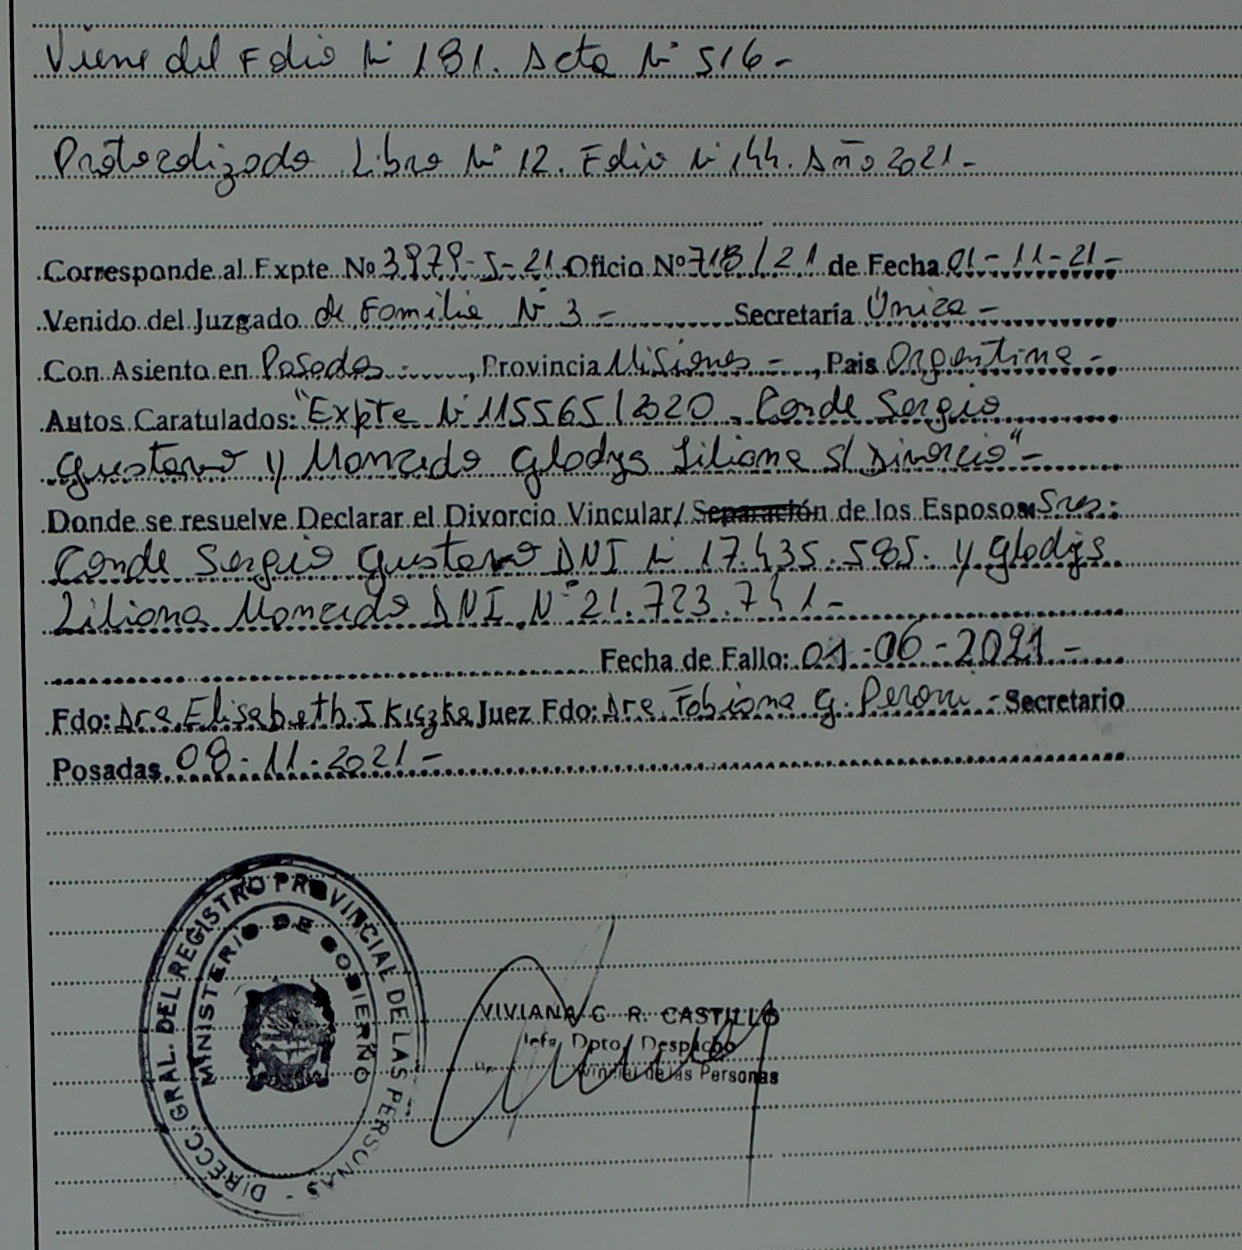 Viene del Folio N° 181. Acta N° 516-
Protocolizado Libro N° 12. Folio N° 144. Año 2021-
Corresponde al Expte Nº 3979-S-21 Oficio Nº 718/21 de Fecha 01-11-21-
Venido del Juzgado de Familia N° 3 - Secretaría Única -
Con Asiento en Posadas -, Provincia Misiones -, Pais Argentina -
Autos Caratulados: "Expte N° 115565/2020 - Conde Sergio
Gustavo y Moncada Gladys Liliana s/ Divorcio"-
Donde se resuelve Declarar el Divorcio Vincular/ Separación de los Esposos Sres:
Conde Sergio Gustavo DNI N° 17.435.585. y Gladys
Liliana Moncada DNI N° 21.723.741-
Fecha de Fallo: 01-06-2021-
Fdo: Dra Elisabeth I Kiczka Juez Fdo: Dra Fabiana G. Peroni - Secretario
Posadas 08-11-2021-
DIRECC. GRAL. DEL REGISTRO PROVINCIAL DE LAS PERSONAS -
MINISTERIO DE GOBIERNO
VIVIANA C. R. CASTILLO
Jefa Dpto. Despacho
de las Personas